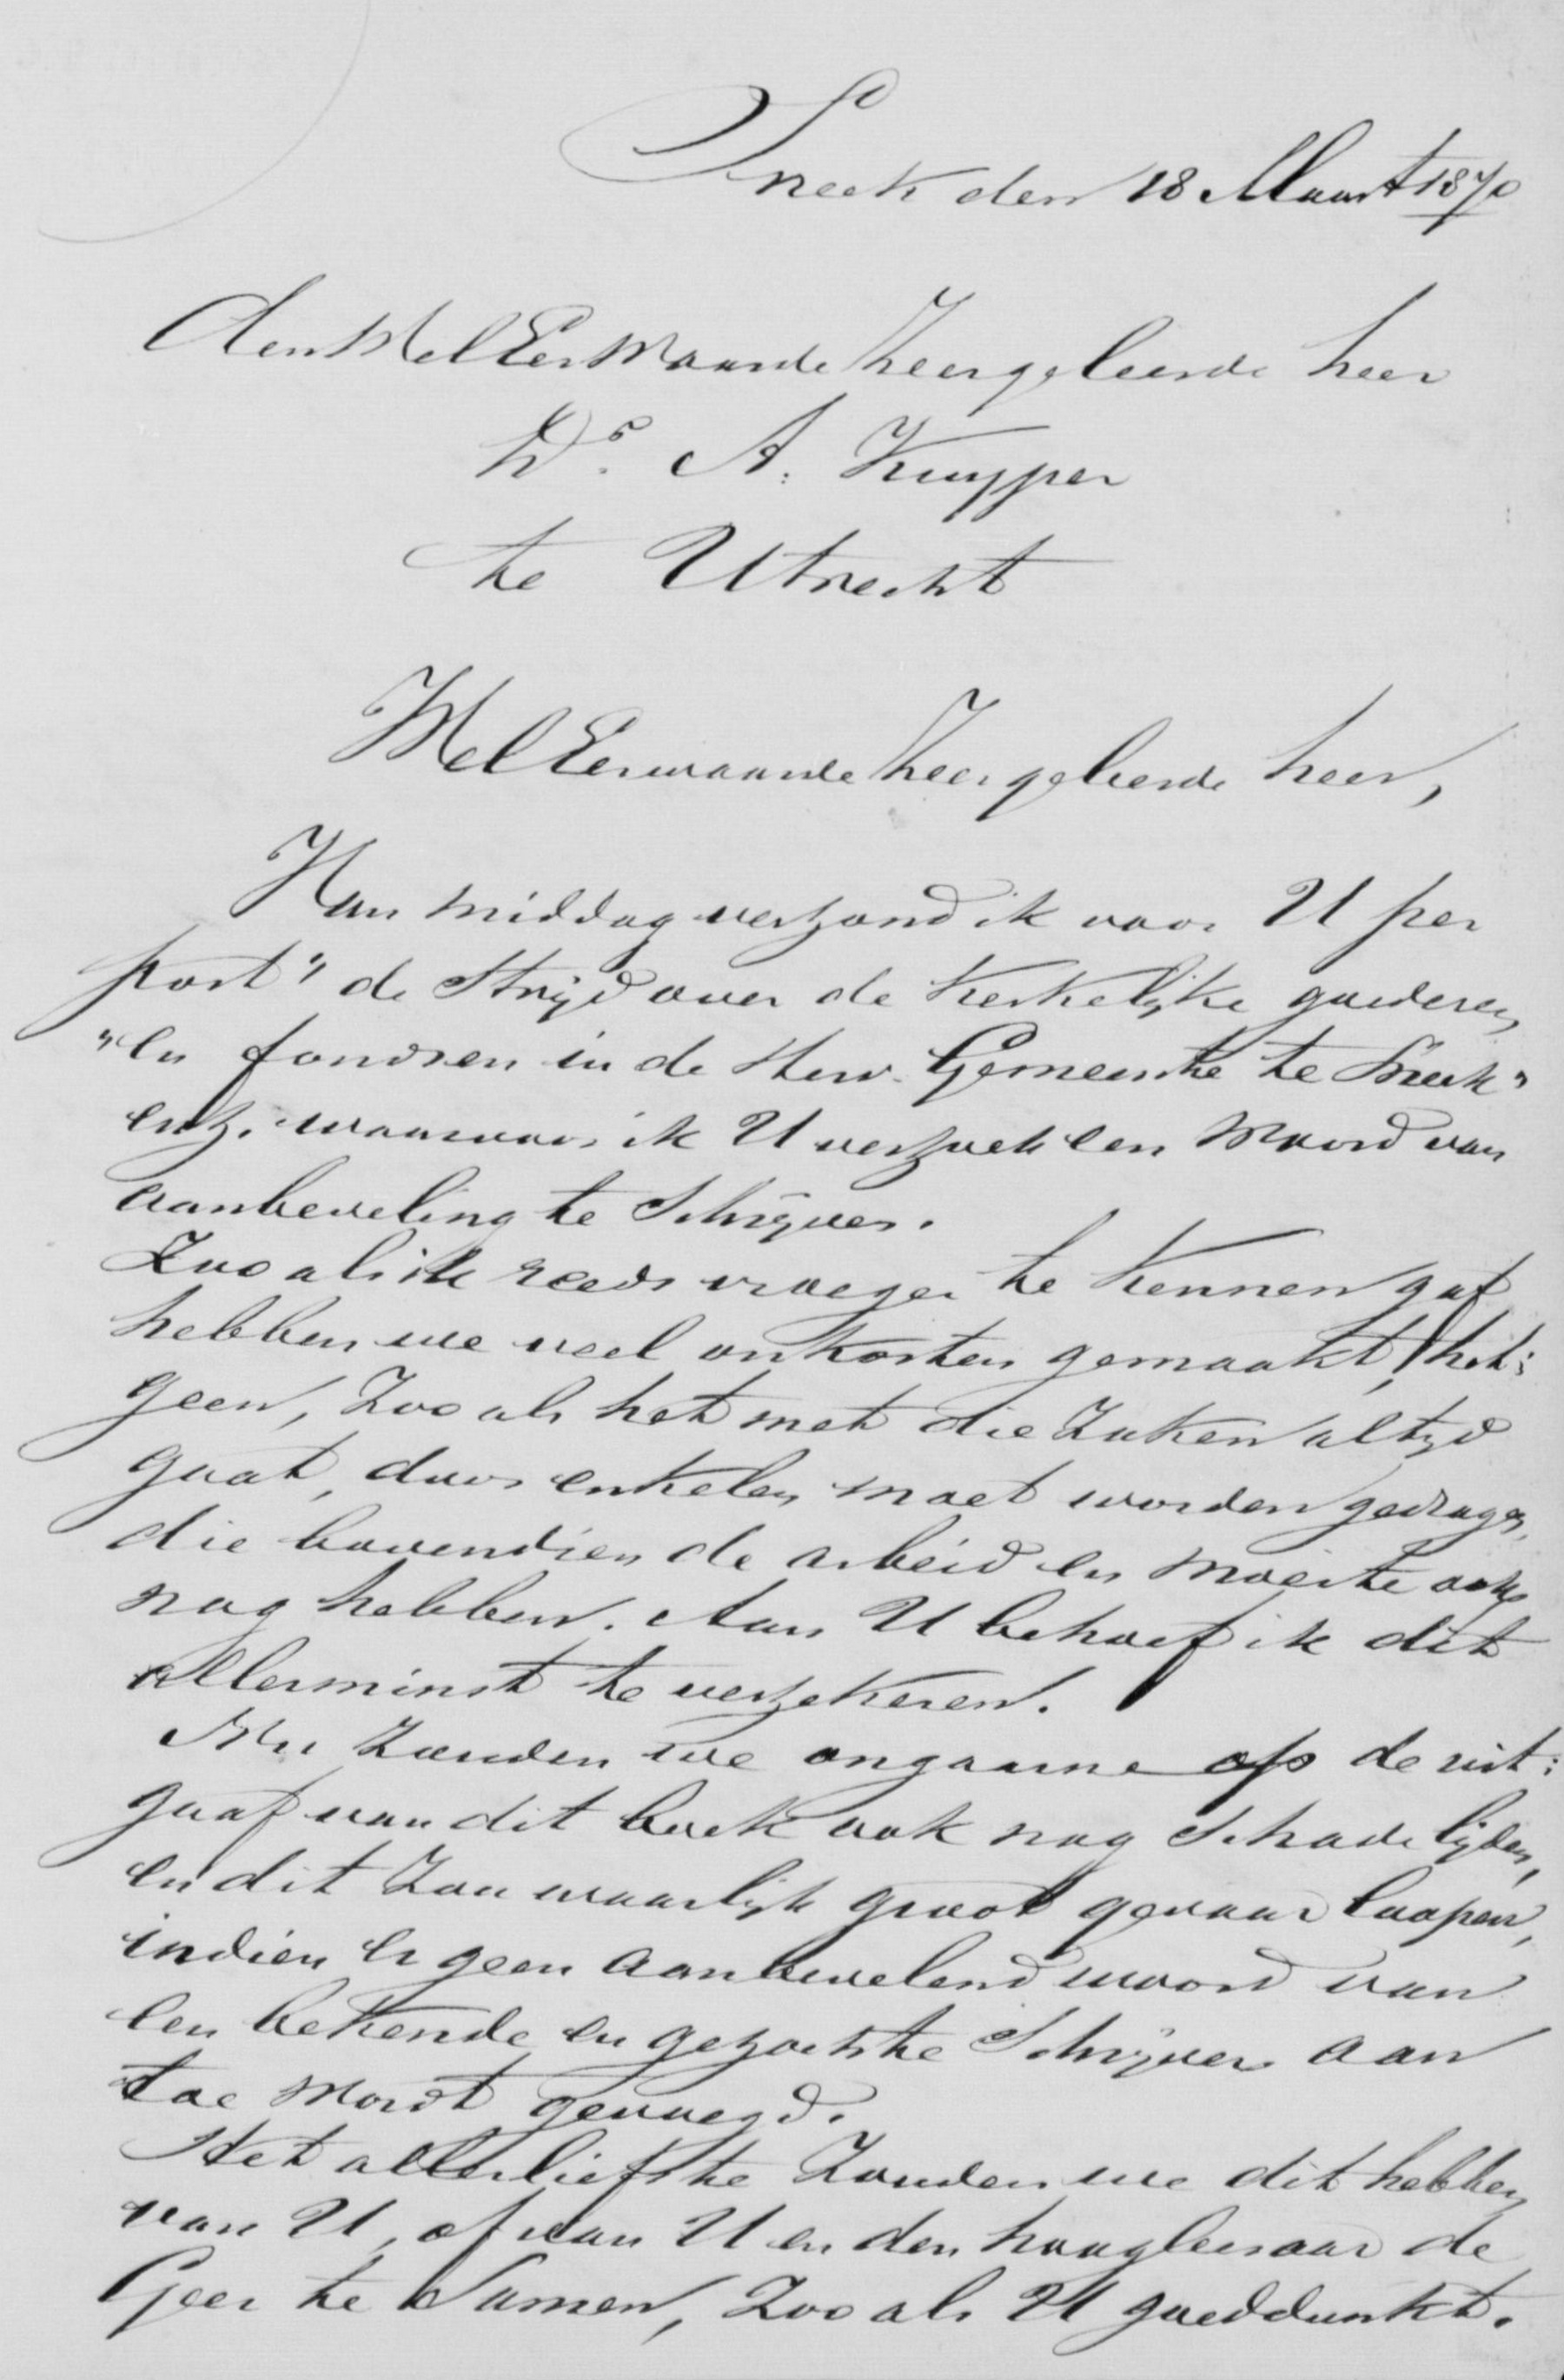 Sneek den 18 Maart 1870
Den WelEerWaarde Zeergeleerde heer
Ds. A. Kuyper
te Utrecht
WelEerwaarde Zeergeleerde heer,
Van middag verzond ik voor U per
post "de Strijd over de Kerkelijke goederen
"en fondsen in de Herv. Gemeente te Sneek"
enz. waarvoor ik U verzoek een Woord van
aanbeveling te Schrijven.
Zoo als ik reeds vroeger te Kennen gaf
hebben we veel onkosten gemaakt, het:
geen, Zoo als het met die Zaken altijd
gaat, door enkelen moet worden gedragen,
die bovendien de arbeid en moeite ook
nog hebben. Aan U behoef ik dit
allerminst te verzekeren.
Nu Zouden we ongaarne op de uit:
gaaf van dit boek ook nog Schade lijden,
en dit Zou waarlijk groot gevaar loopen,
indien er geen aanbevelend woord van
een bekende en gezochte Schrijver aan
toe Wordt gevoegd.
Het allerliefste Zouden we dit hebben
van U, of van U en den hoogleeraar de
Geer te Samen, Zoo als U goeddunkt.